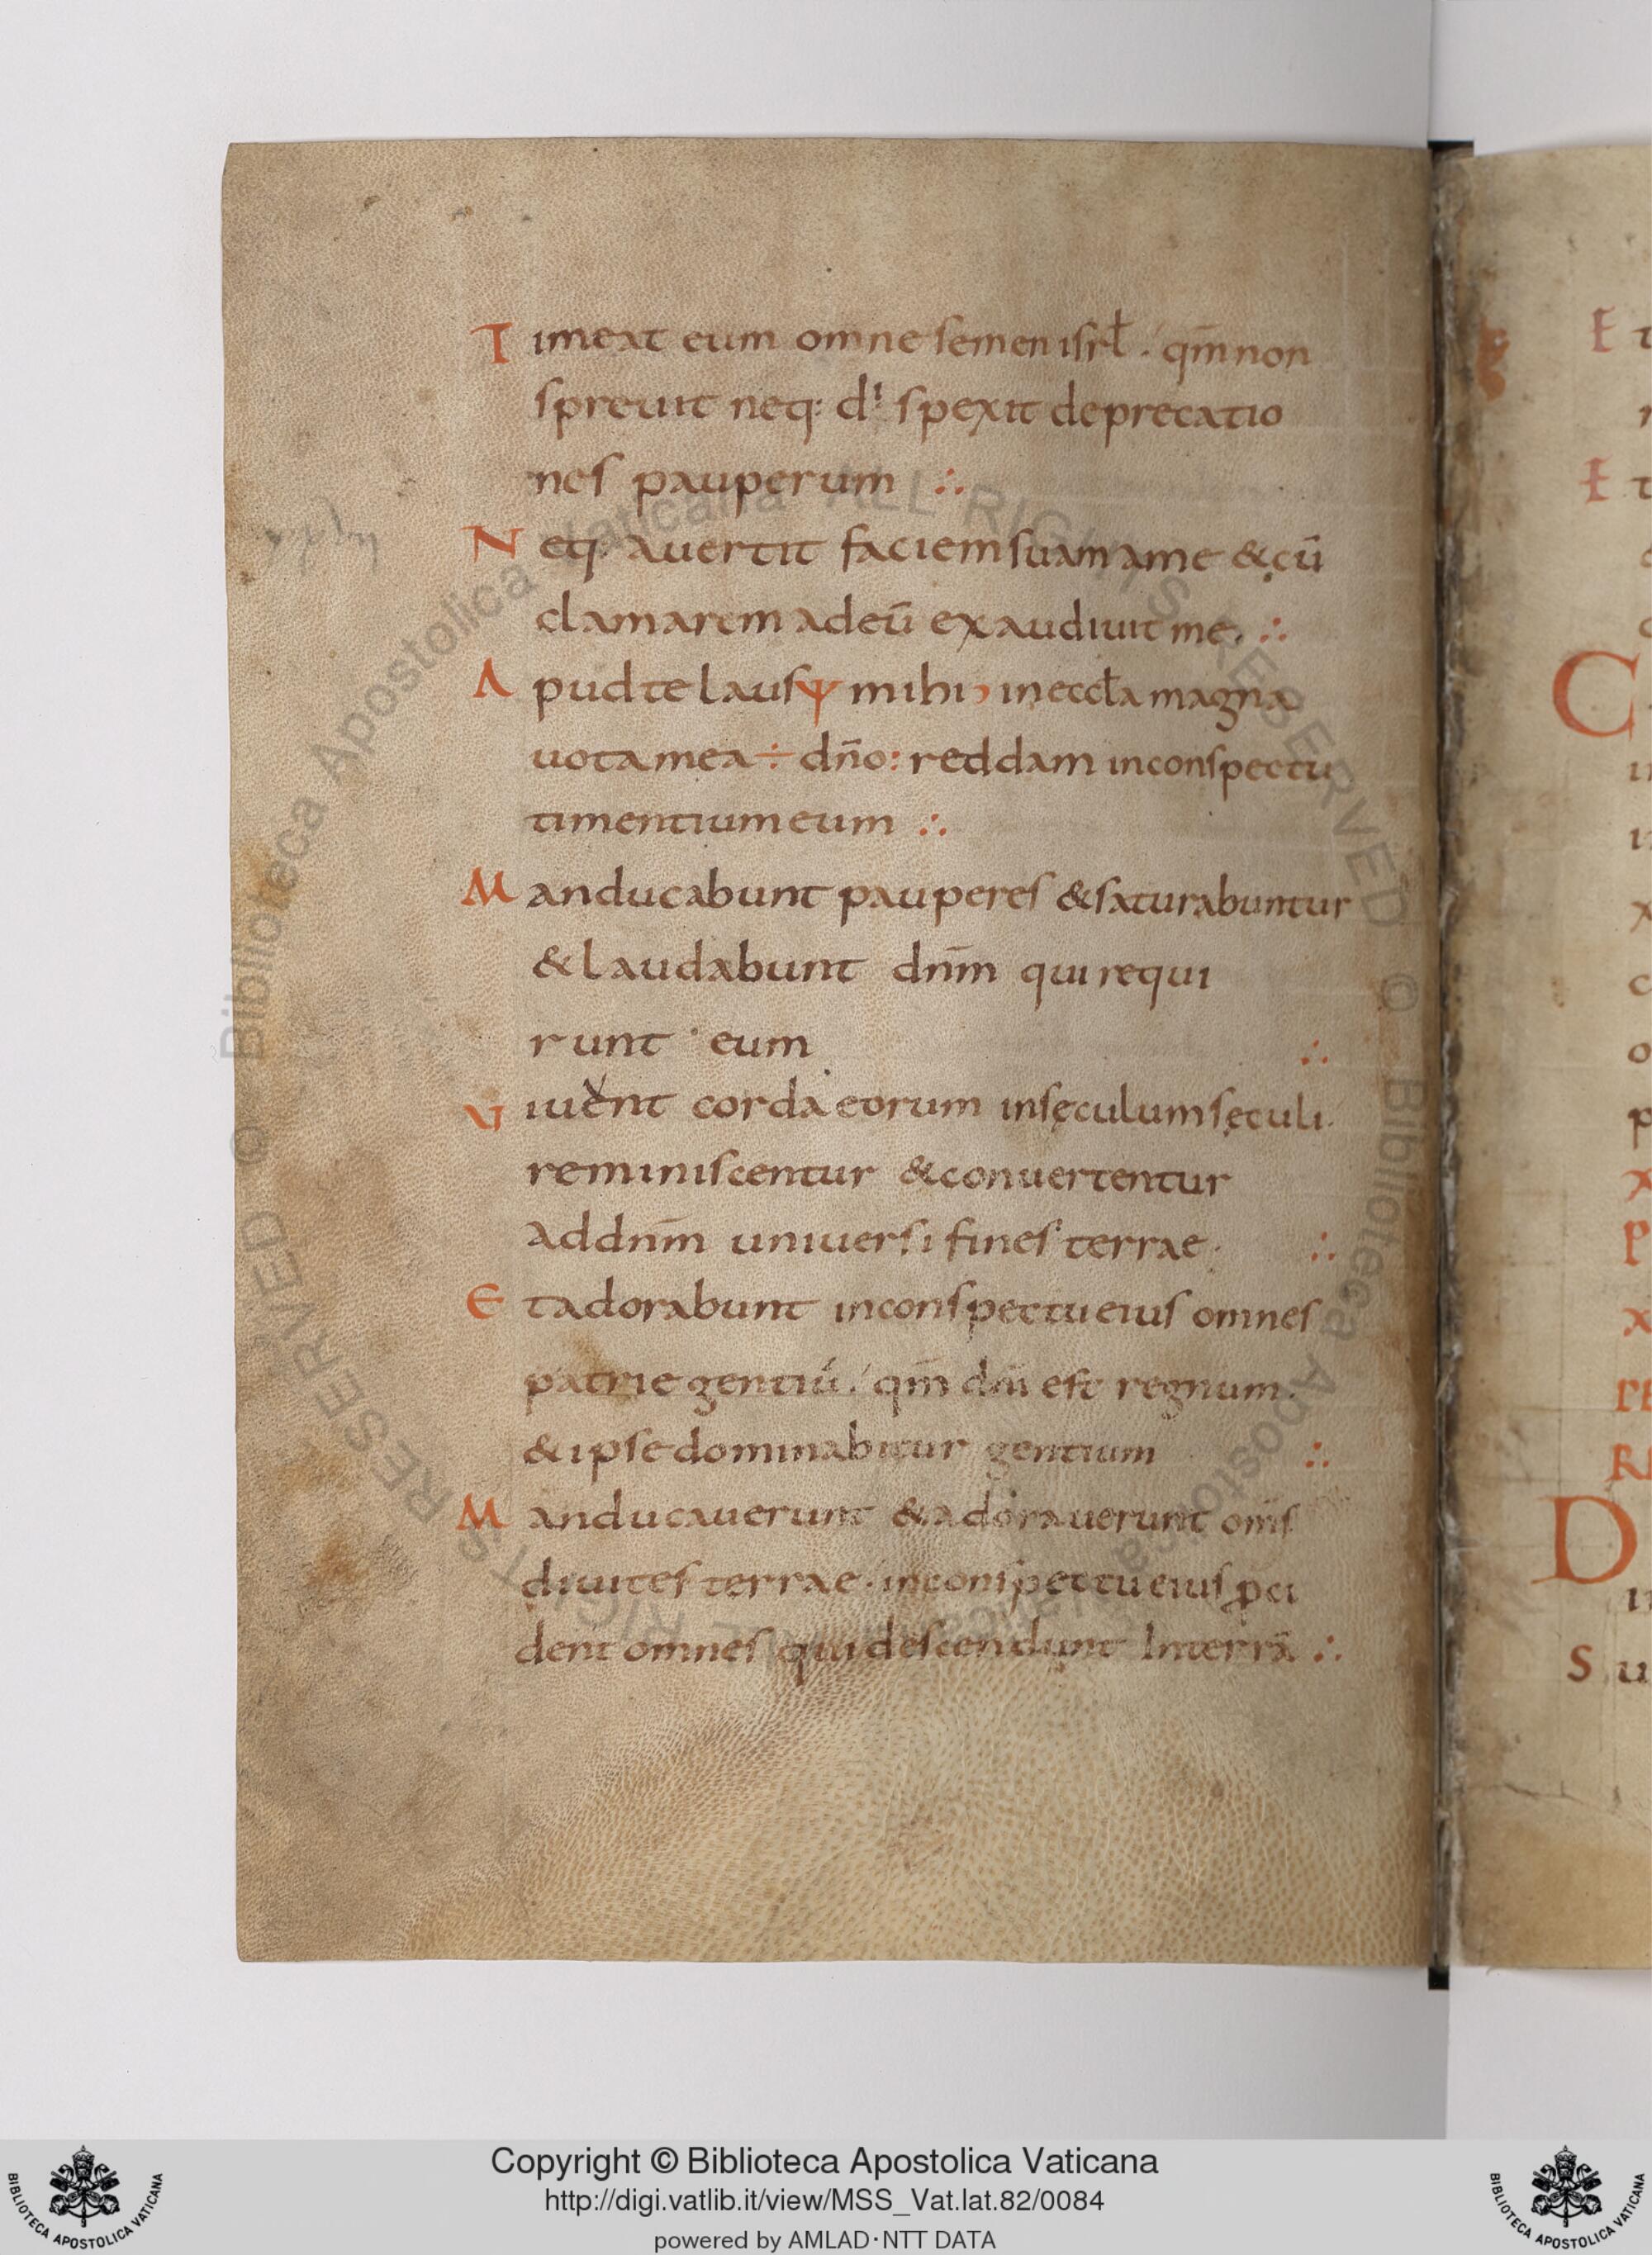 Timeat eum omne semen isrł ./ qm̄ non
spreuit neq: d! spexit deprecatio
nes pauperum ∴
Neq: auertit faciem suam a me & cū
clamarem ad eū exaudiuit me. ∴
Apud te laus ψ mihi, in eccła magna
uota mea ÷ dn̄o: reddam in conspectu
timentium eum ∴
Manducabunt pauperes & saturabuntur
& laudabunt dnm̄ qui requi
runt eum ∴
Uiuent corda eorum in sęculum sęculi.
reminiscentur & conuertentur
ad dnm̄ uniuersi fines terrae. ∴
Et adorabunt in conspectu eius omnes
patrie gentiū ./ qm̄ dn̄i est regnum.
& ipse dominabitur gentium ∴
Manducauerunt & adorauerunt om̄s
diuites terrae. in conspectu eius ꝓci
dent omnes qui descendunt In terrā ∴
E t
E t
C
D
S u
© Biblioteca Apostolica Vaticana ALL RIGHTS RESERVED © Biblioteca Apostolica Vaticana ALL RIGHTS RESERVED
Copyright © Biblioteca Apostolica Vaticana
http://digi.vatlib.it/view/MSS_Vat.lat.82/0084
powered by AMLAD·NTT DATA
BIBLIOTECA APOSTOLICA VATICANA
BIBLIOTECA APOSTOLICA VATICANA